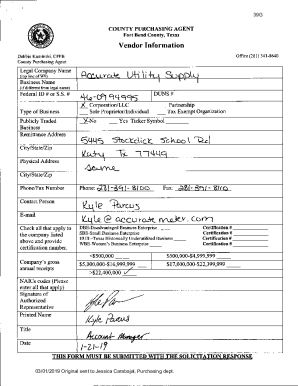 393
COUNTY PURCHASING AGENT
Fort Bend County, Texas
Vendor Information
Debbie Kaminski, CPPB
County Purchasing Agent
Office (281) 341-8640
Legal Company Name
(top line of W9)
Accurate Utility Supply
Business Name
(if different from legal name)
Federal ID # or S.S. #
46-0994995
DUNS #
Type of Business
X Corporation/LLC
Partnership
Sole Proprietor/Individual
Tax Exempt Organization
Publicly Traded
Business
X No
Yes Ticker Symbol
Remittance Address
5445 Stockdick School Rd
City/State/Zip
Katy Tx 77449
Physical Address
Same
City/State/Zip
Phone/Fax Number
Phone: 281-891-8100
Fax: 281-891-8110
Contact Person
Kyle Parcus
E-mail
Kyle@accuratemeter.com
Check all that apply to
the company listed
above and provide
certification number.
DBE-Disadvantaged Business Enterprise
Certification #
SBE-Small Business Enterprise
Certification #
HUB-Texas Historically Underutilized Business
Certification #
WBE-Women's Business Enterprise
Certification #
Company's gross
annual receipts
<$500,000
$500,000-$4,999,999
$5,000,000-$16,999,999
$17,000,000-$22,399,999
>$22,400,000
NAICs codes (Please
enter all that apply)
Signature of
Authorized
Representative
Printed Name
Kyle Parcus
Title
Account Manager
Date
1-21-19
THIS FORM MUST BE SUBMITTED WITH THE SOLICITATION RESPONSE
03/01/2019 Original sent to Jessica Carabajal, Purchasing dept.